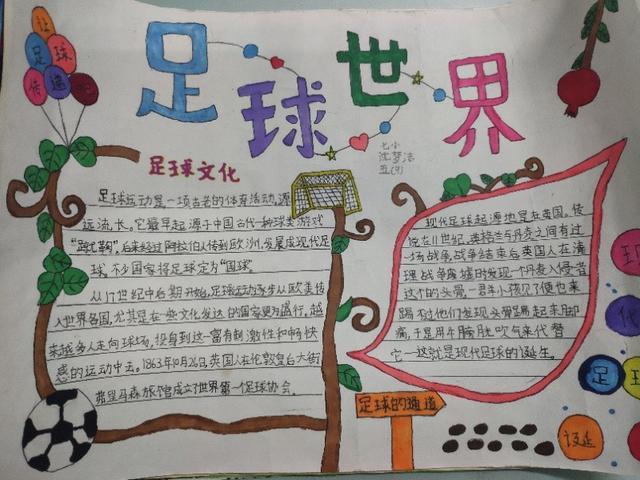 让
足球
传递吧
足球世界
七小
沈梦洁
五(9)
足球文化
足球运动是一项古老的体育活动,源
远流长。它最早起源于中国古代一种球类游戏
“蹴鞠”,后来经过阿拉伯人传到欧洲,发展成现代足
球。不少国家将足球定为“国球”。
从17世纪中后期开始,足球运动逐步从欧美传
入世界各国,尤其是在一些文化发达的国家更为盛行,越
来越多人走向球场,投身到这一富有刺激性和畅快
感的运动中去。1863年10月26日,英国人在伦敦皇后大街
弗里马森旅馆成立了世界第一个足球协会。
现代足球起源地是在英国。传
说在11世纪,英格兰与丹麦之间有过
一场战争,战争结束后英国人在清
理战争废墟时发现一个丹麦入侵者
这个的头骨,一群小孩见了便也来
踢不过他们发现头骨踢起来脚
痛,于是用牛膀胱吹气来代替
它一这就是现代足球的诞生。
足球的通道
足